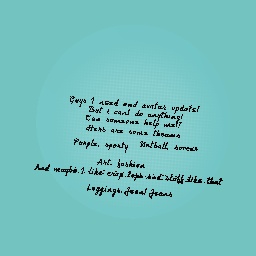 Guys I need and avatar update!
But i cant do anything!
Can someone help me!?
Hers are some theams
Purple, sporty Netball soccer
Art, fashion
And maybe I like crop tops and stuff like that
Leggings, Jean! Jeans